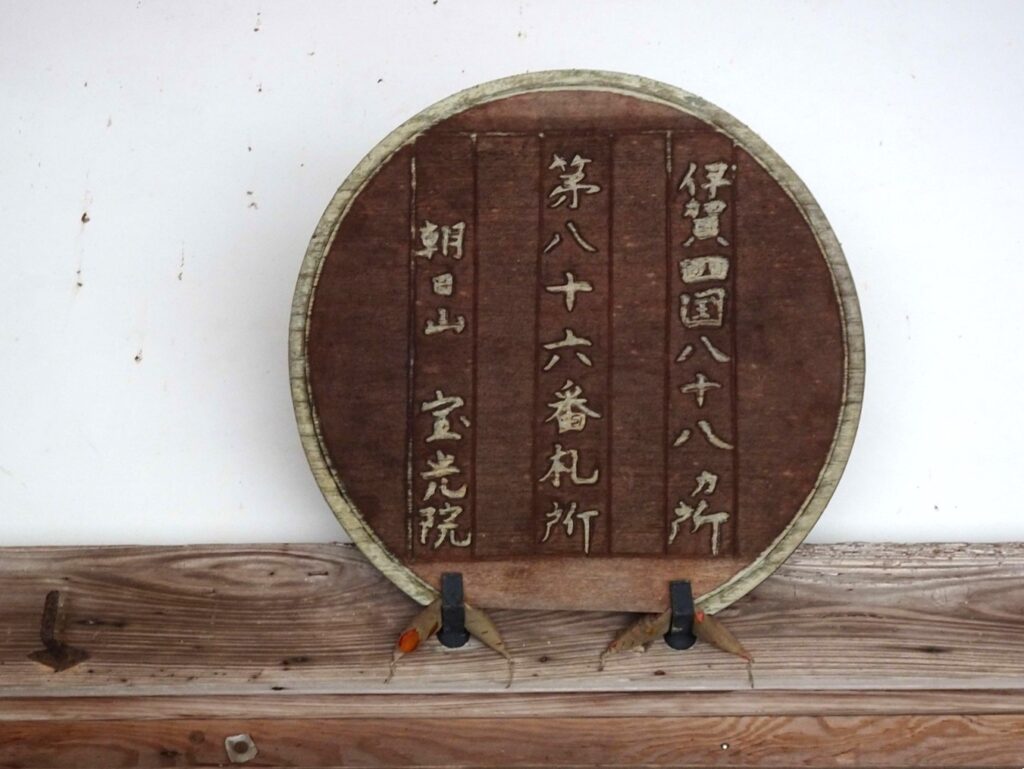 伊賀四国八十八ヵ所
第八十六番札所
朝日山 宝光院